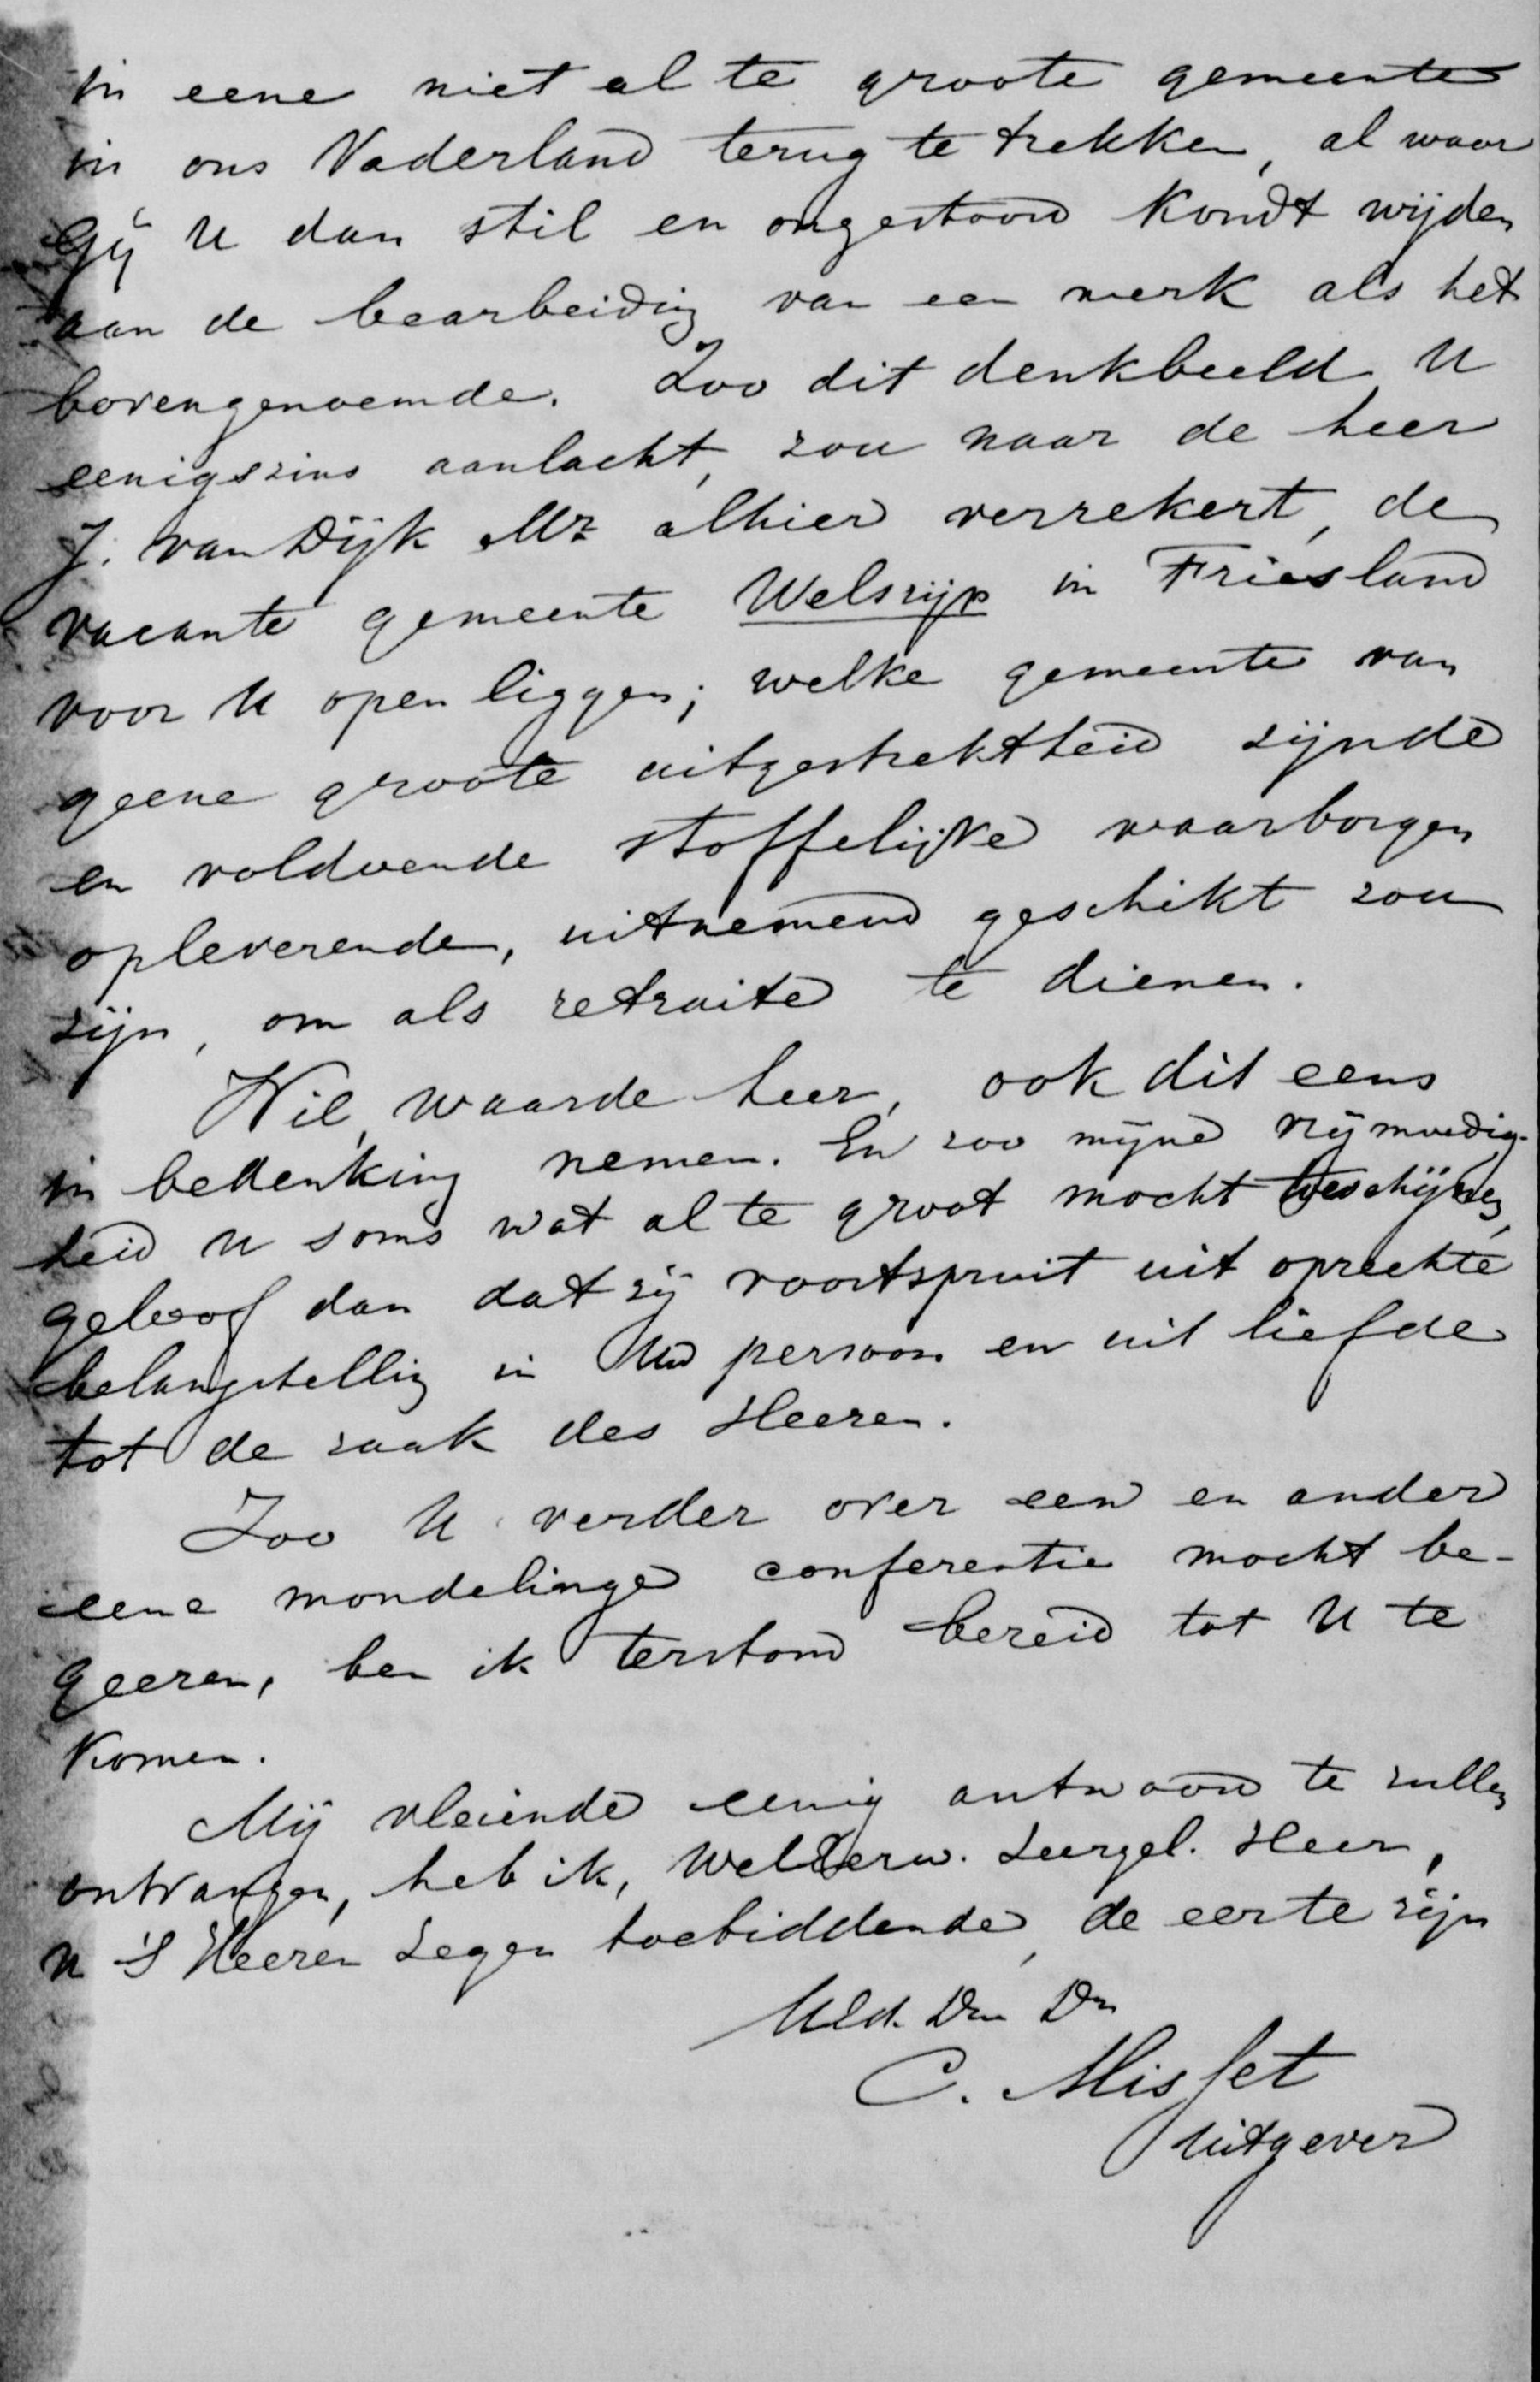 in eene niet al te groote gemeente
in ons Vaderland terug te trekken, al waar
Gij U dan stil en ongestoord kondt wijden
aan de bearbeiding van een werk als het
bovengenoemde. Zoo dit denkbeeld U
eenigszins aanlacht, zou naar de heer
J. van Dijk Mz alhier verzekert, de
vacante gemeente Welsrijp in Friesland
voor U open liggen; welke gemeente van
geene groote uitgestrektheid zijnde
en voldoende stoffelijke waarborgen
opleverende, uitnemend geschikt zou
zijn, om als retraite te dienen.
Wil, waarde heer, ook dit eens
in bedenking nemen. En zoo mijne vrijmoedig-
heid U soms wat al te groot mocht toeschijnen,
geloof dan dat zij voortspruit uit oprechte
belangstelling in Uw persoon en uit liefde
tot de zaak des Heeren.
Zoo U verder over een en ander
eene mondelinge conferentie mocht be-
geeren, ben ik terstond bereid tot U te
komen.
Mij vleiende eenig antwoord te zullen
ontvangen, heb ik, WelEerw. Zeergel. Heer,
U 's Heeren zegen toebiddende, de eer te zijn
UEd. Dw Dr
C. Misset
Uitgever